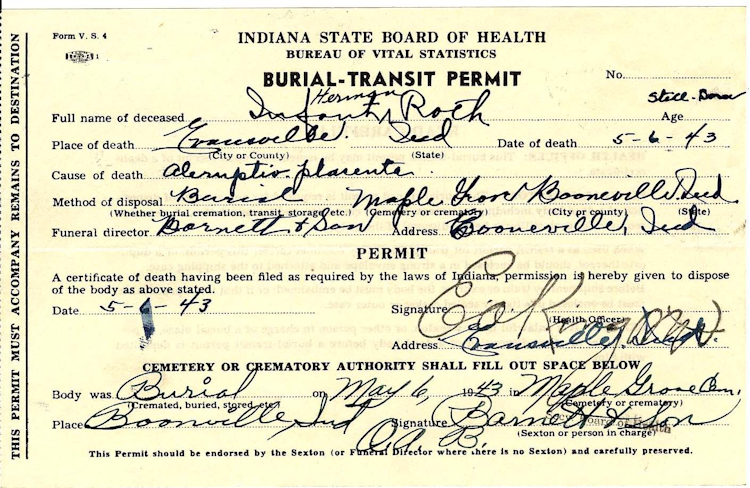 Form V. S. 4
INDIANA STATE BOARD OF HEALTH
BUREAU OF VITAL STATISTICS
BURIAL-TRANSIT PERMIT
No.
Herman
Still-Born
Full name of deceased Infant Roth Age
Place of death Evansville. Ind Date of death 5-6-43
(City or County) (State)
Cause of death Abruptio placenta
Method of disposal Burial Maple Grove Booneville, Ind
(Whether burial cremation, transit, storage, etc.) (Cemetery or crematory) (City or county) (State)
Funeral director Barnett & Son Address Booneville, Ind
PERMIT
A certificate of death having been filed as required by the laws of Indiana, permission is hereby given to dispose
of the body as above stated.
Date 5-6-43 Signature
(Health Officer)
Address Evansville,
CEMETERY OR CREMATORY AUTHORITY SHALL FILL OUT SPACE BELOW
Body was Burial on May 6, 1943 in Maple Grove Cem.
(Cremated, buried, stored, etc.) (Cemetery or crematory)
Place Boonville Ind Signature Barnett & Son
(Sexton or person in charge)
O.A.B.
This Permit should be endorsed by the Sexton (or Funeral Director where there is no Sexton) and carefully preserved.
THIS PERMIT MUST ACCOMPANY REMAINS TO DESTINATION